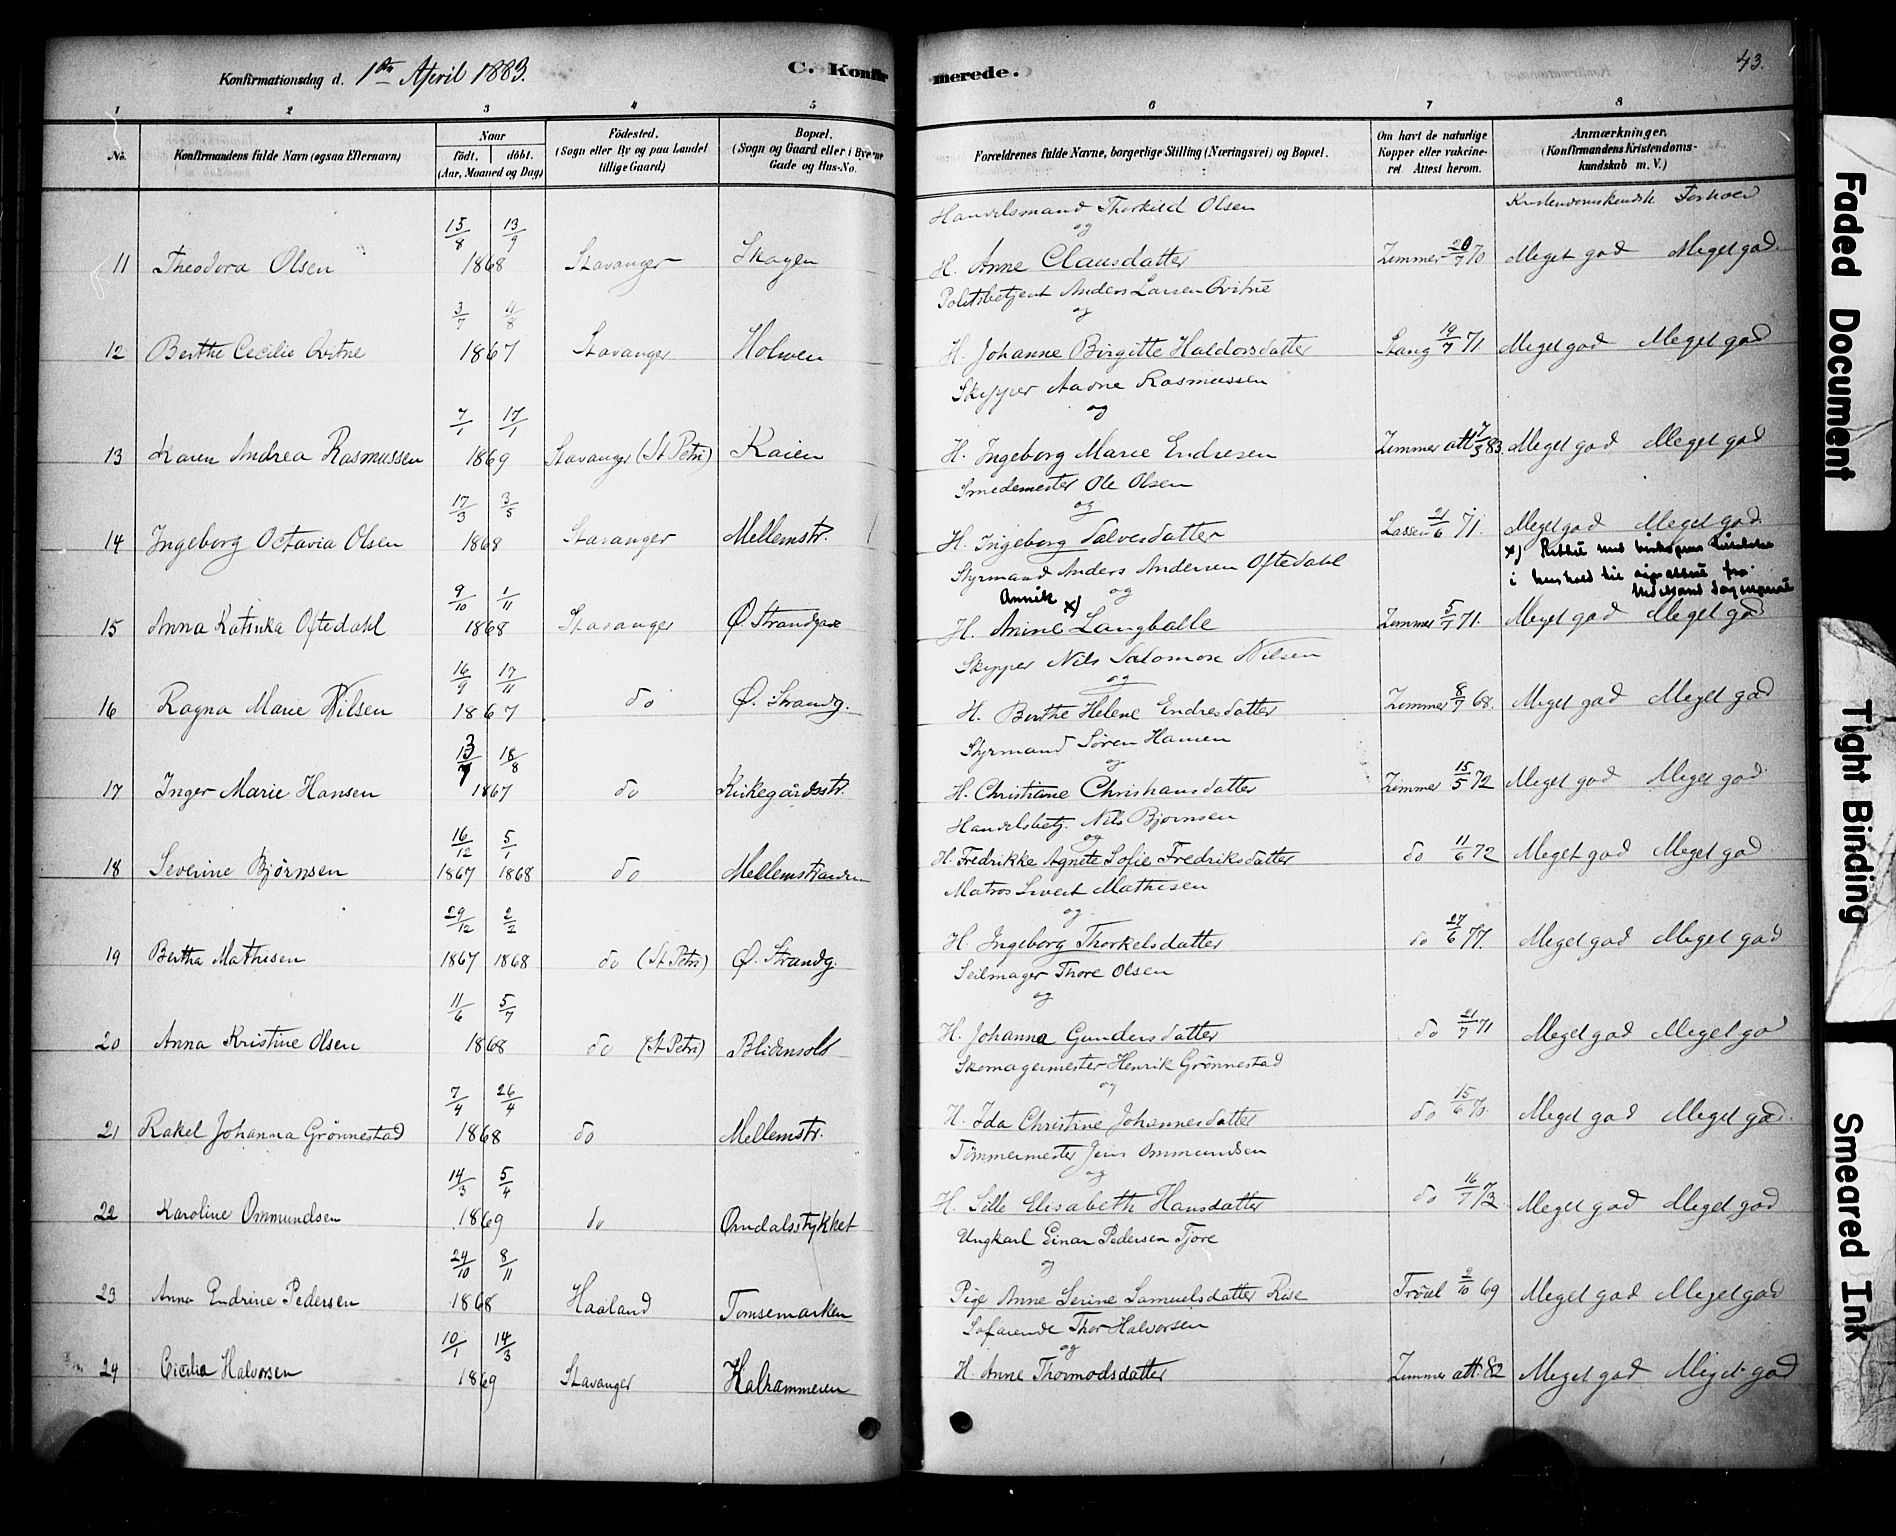 Konfirmationsdag d. 1ste April 1883. C. Konfirmerede. 43.
1 2 3 4 5 6 7 8
No. Konfirmandens fulde Navn (ogsaa Efternavn) Naar født. døbt. (Aar, Maaned og Dag) Fødested. (Sogn eller By og paa Landet tillige Gaard) Bopæl. (Sogn og Gaard eller i Byerne Gade og Hus-No. Forældrenes fulde Navne, borgerlige Stilling (Næringsvei) og Bopæl. Om havt de naturlige Kopper eller vakcineret. Attest herom. Anmærkninger. (Konfirmandens Kristendomskundskab m. V.)
Handelsmand Thorkild Olsen Kristendomskundsk Forhold
15/8 13/9 og
11 Theodora Olsen 1868 Stavanger Skagen H. Anne Clausdatter Zimmer 20/7 70 Meget god Meget god.
Politibetjent Anders Larsen Qvitne
3/7 11/8 og
12 Berthe Cecilie Qvitne 1867 Stavanger Holmen H. Johanne Birgitte Haldorsdatter Stang 19/7 71 Meget god Meget god
Skipper Aadne Rasmussen
7/1 17/1 og
13 Karen Andrea Rasmussen 1869 Stavanger (St Petri) Kaien H. Ingeborg Marie Endresen Zimmer att 7/3 83. Meget god Meget god
Smedemester Ole Olsen
17/3 3/5 og
14 Ingeborg Octavia Olsen 1868 Stavanger Mellemstr. H. Ingeborg Salvesdatter Lassen 21/6 71. Meget god Meget god.
x) Rettet med biskopens
Styrmand Anders Andersen Oftedahl i henhold til fra
9/10 1/11 Annik x) og
15 Anna Katinka Oftedahl 1868 Stavanger Ø Strandgade H. Anine Langballe Zimmer 5/7 71. Meget god Meget god
Skipper Nils Salomon Nilsen
16/9 17/11 og
16 Ragna Marie Nilsen 1867 do Ø. Strandg. H. Berthe Helene Endresdatter Zimmer 8/7 68. Meget god Meget god
Styrmand Søren Hansen
13/7 18/8 3 og
17 Inger Marie Hansen 1867 do Kirkegårdsstr. H. Christiane Christiansdatter Zimmer 15/5 72 Meget god Meget god.
Handelsbetj. Nils Bjørnsen
16/12 5/1 og
18 Severine Bjørnsen 1867 1868 do Mellemstranden H. Fredrikke Agnete Sofie Fredriksdatter do 11/6 72 Meget god Meget god.
Matros Sivert Mathisen
29/12 2/2 og
19 Bertha Mathisen 1867 1868 do (St Petri) Ø. Strandg. H. Ingeborg Thorkelsdatter do 27/6 77. Meget god Meget god
Seilmager Thore Olsen
11/6 5/7 og
20 Anna Kristine Olsen 1868 do (St Petri) Blidensols H. Johanna Gundersdatter do 21/7 71 Meget god Meget god
Skomagermester Henrik Grønnestad
7/4 26/4 og
21 Rakel Johanna Grönnestad 1868 do Mellemstr. H. Ida Christine Johannesdatter do 15/6 70. Meget god Meget god.
Tömmermester Jens Ommundsen
14/3 5/4 og
22 Karoline Ommundsen 1869 do Omdalsstykket H. Sille Elisabeth Hansdatter do 16/7 73 Meget god Meget god
Ungkarl Einar Pedersen Tjore
24/10 8/11 og
23 Anna Endrine Pedersen 1868 Haaland Tomsemarken Pige Anne Serine Samuelsdatter Rise Tröal 2/10 69 Meget god Meget god
Søfarende Thor Halvorsen
10/1 14/3 og
24 Cicilia Halvorsen 1869 Stavanger Kalhammeren H. Anne Thormodsdatter Zimmer att. 82 Meget god Meget god
Faded Document
Tight Binding
Smeared Ink